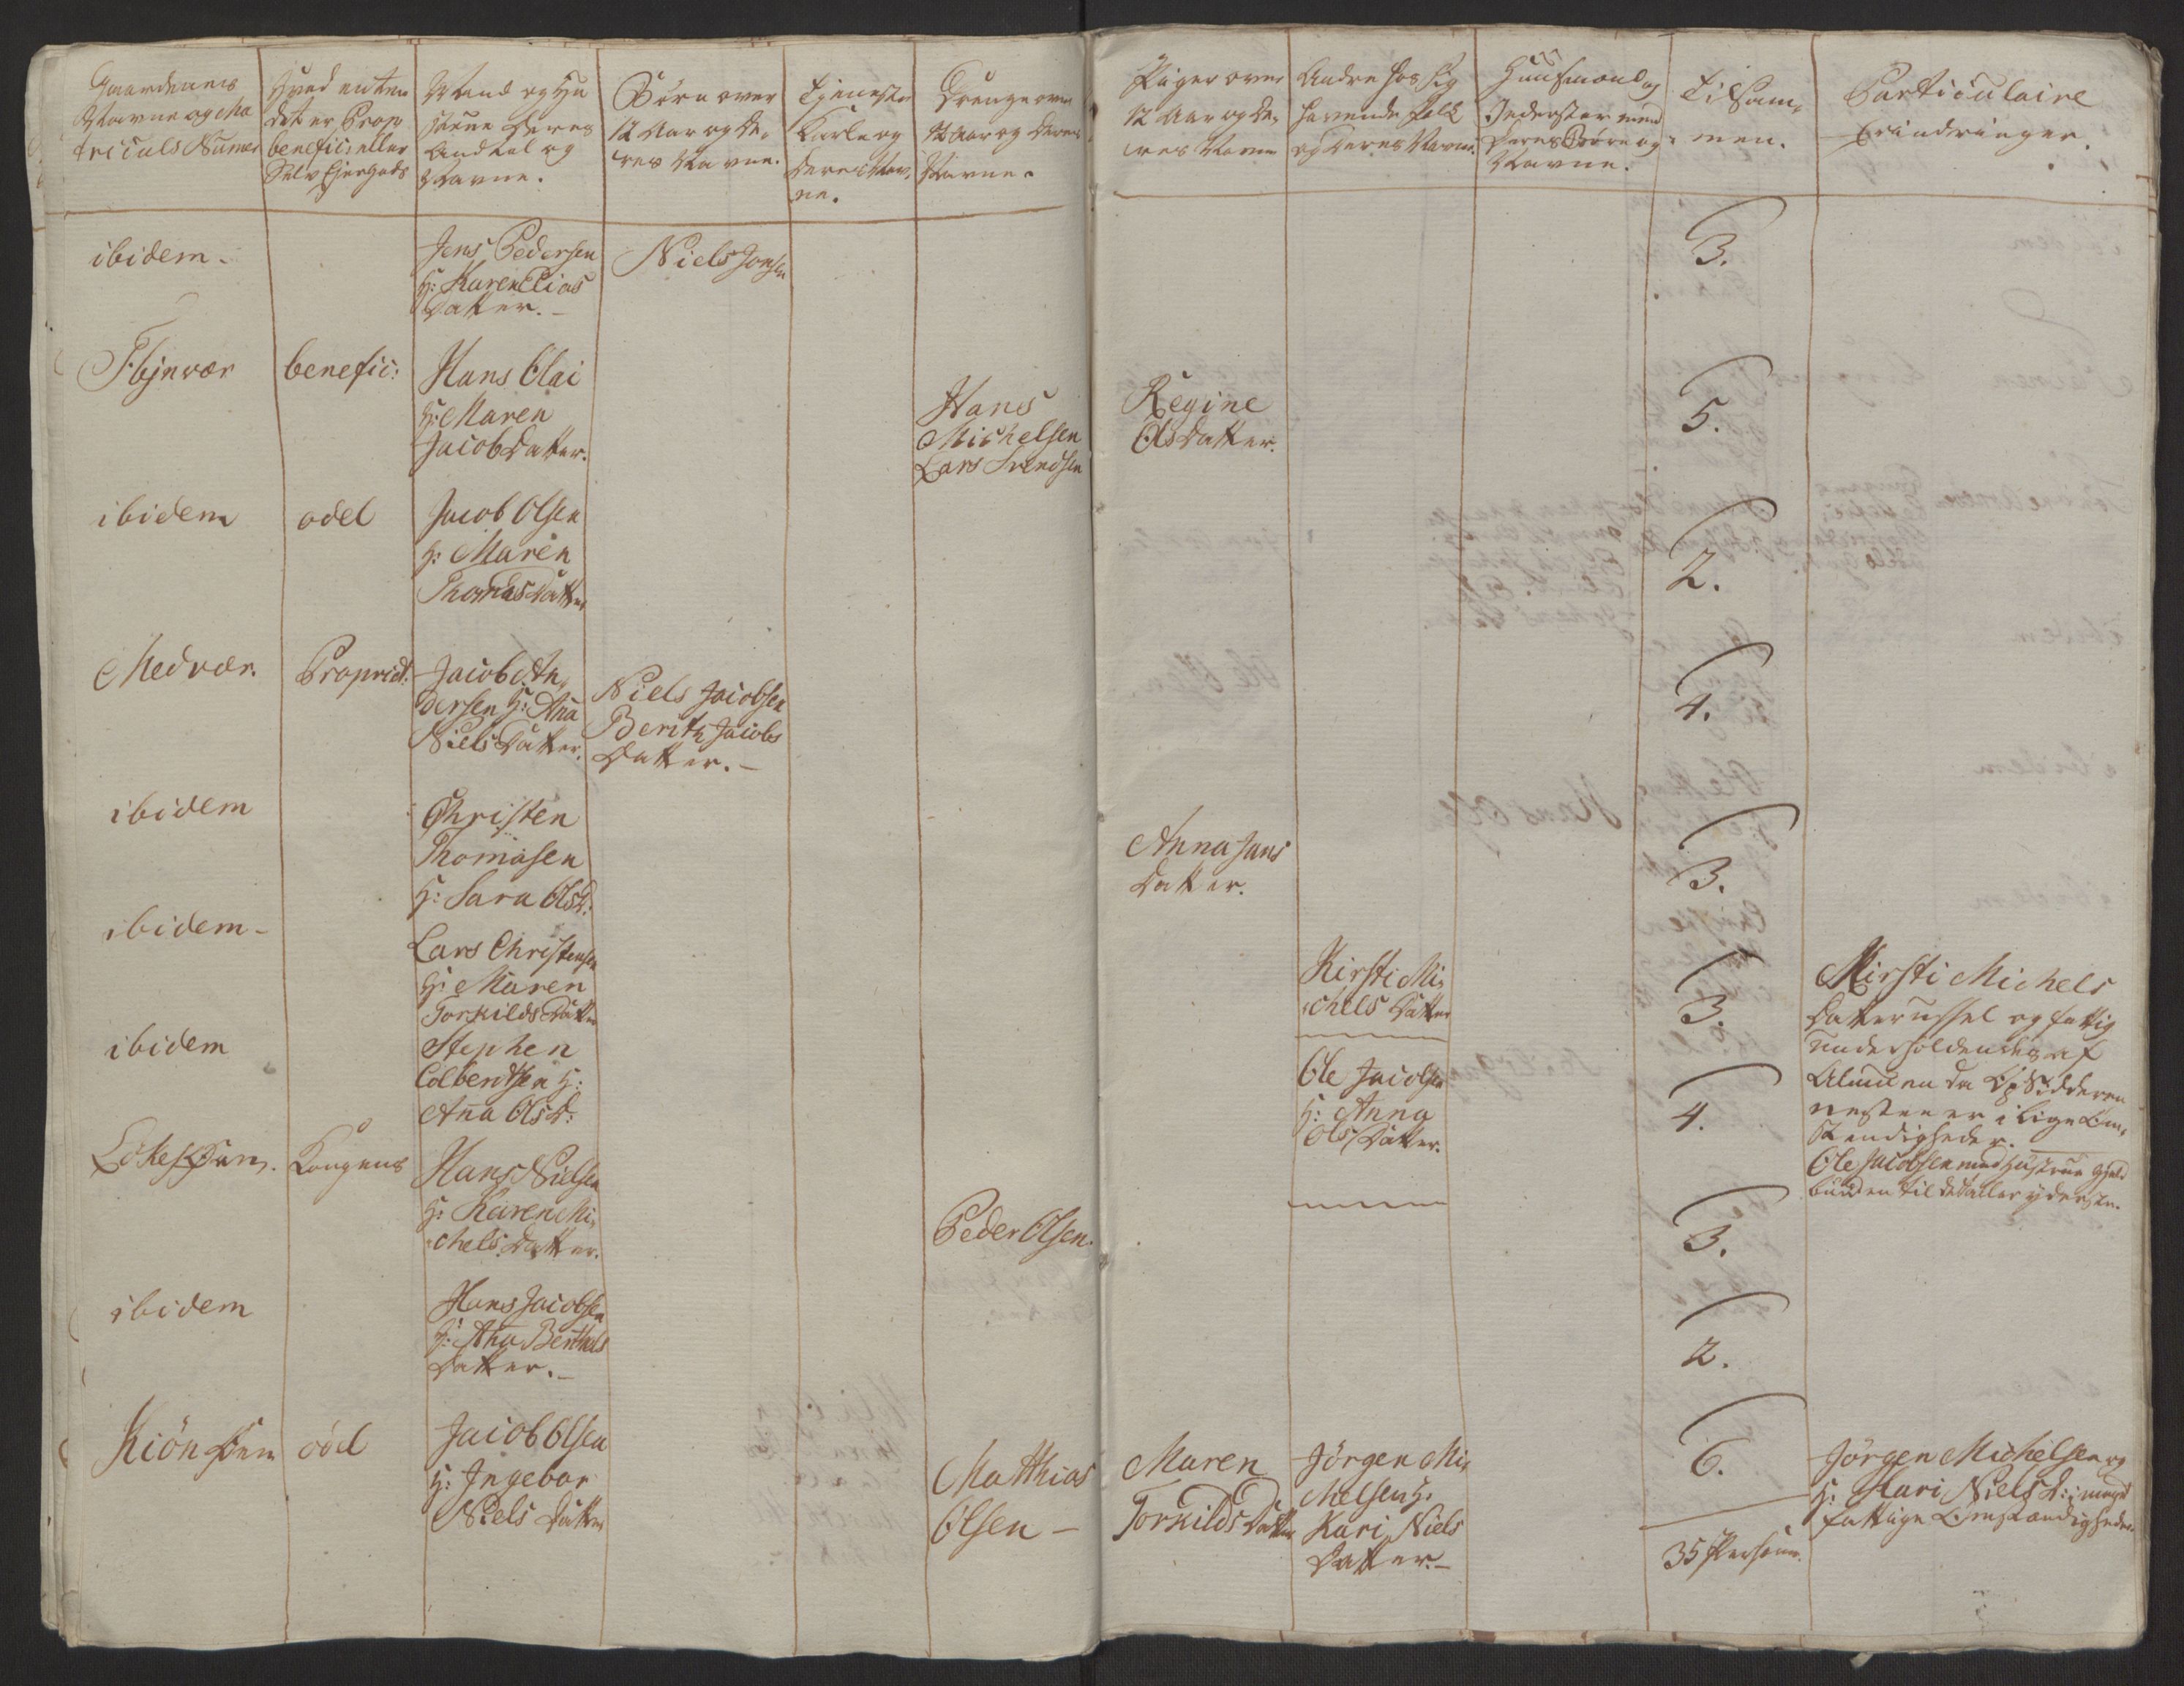 Gaardenes
Navne og Ma
triculs Numer
Hvad enten
det er Prop
benefic: eller
Selv Ejer gods
Mand og Hu
strue deres
Andtal og
Navne.
Börn over
12 Aar og de,
res Navne.
Tjeneste
Karle og
deres Nav,
ne.
Drenge over
12 Aar og deres
Navne.
Piger over
12 Aar og de,
res Navne
Andre hos sig
havende folk
og deres Navne.
Huusmænd og
Inderster med
deres Börn og
Navne.
Tilsam,
men.
Particulaire
Erindringer.
ibidem.
Jens Pedersen
H: Karen Elias
Datter.
Niels Jensen
3.
benefic:
Hans Olai
H: Maren
Jacob Datter.
Hans
Michelsen
Lars Svendsen
Regine
Ols Datter.
5.
ibidem
odel
Jacob Olsen
H: Maren
Thomas Datter
2.
Medvær.
Propriet:
Jacob An,
dersen H: Aña
Niels Datter.
Niels Jacobsen
Berith Jacobs
Datter. –
4.
ibidem
Christen
Thomasen
H: Sara Olsd:
Anna Jans
Datter.
3.
ibidem –
Lars Christensen
H: Maren
Torkilds Datter
Kirsti Mi,
chels Datter
3.
Kirsti Michels
Datter ussel og fattig
underholdendes af
Almuen da Opsidderen
nesten er i lige Om,
stendigheder.
ibidem
Stephen
Colbentsen H:
Aña Olsd:
Ole Jacobsen
H: Anna
Ols Datter.
4.
Ole Jacobsen med Hustrue gjeld
bunden til det aller yderste.
Kongens
Hans Nielsen
H: Karen Mi,
chels Datter.
Peder Olsen.
3.
ibidem
Hans Jacobsen
H: Aña Benthes
Datter. –
2.
odel
Jacob Olsen
H: Ingebor
Niels Datter
Matthias
Olsen –
Maren
Torkilds Datter
Jörgen Mi,
chelsen H:
Kari Niels
Datter. –
6.
Jörgen Michelsen og
H: Kari Niels D: i meget
fattige Omstændigheder
35 Personer.